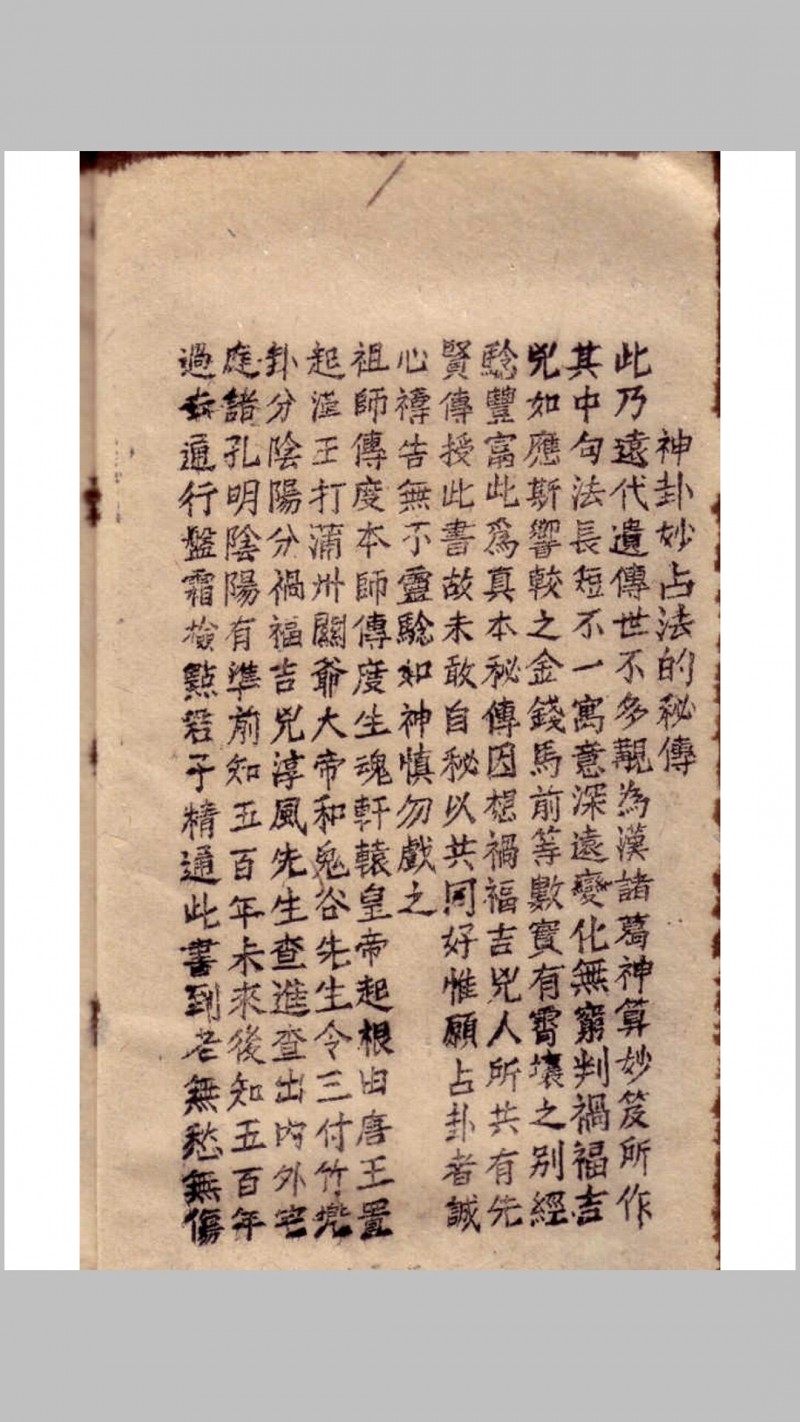 神卦妙占法的秘傳
此乃遠代遺傳世不多覯為漢諸葛神算妙笈所作
其中句法長短不一寓意深遠變化無窮判禍福吉
兇如應斯響較之金錢馬前等數實有霄壤之別經
騐豐富此為真本秘傳因想禍福吉兇人所共有先
賢傳授此書故未敢自秘以共同好惟願占卦者誠
心禱告無不靈騐如神慎勿戲之
祖師傳度本師傳度生魂軒轅皇帝起根由唐王置
起 王打蒲州關爺大帝和鬼谷先生令三付竹
卦分陰陽分禍福吉兇淳風先生查進查出內外宅
庭諸孔明陰陽有準前知五百年未來後知五百年
過去通行盤霜檢點君子精通此書到老無愁無傷